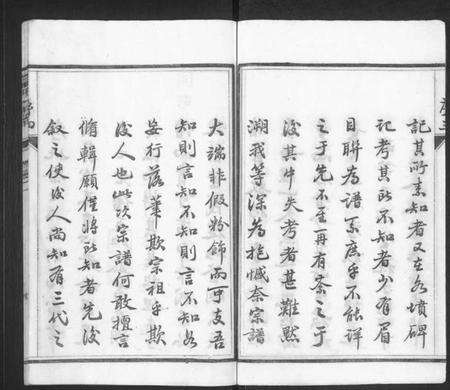 記其所素知者又在各墳碑
記考其所不知者少有眉
目聯為譜系庶乎不能詳
之于先不至再有茶之于
後其中失考者甚難默
溯我等深為抱憾奈宗譜
大端非假粉飾而可支吾
知則言知不知則言不知若
妄行落筆欺宗祖乎欺
後人也此次宗譜何敢擅言
脩輯願僅將所知者先後
敘之使後人尚知有三代之